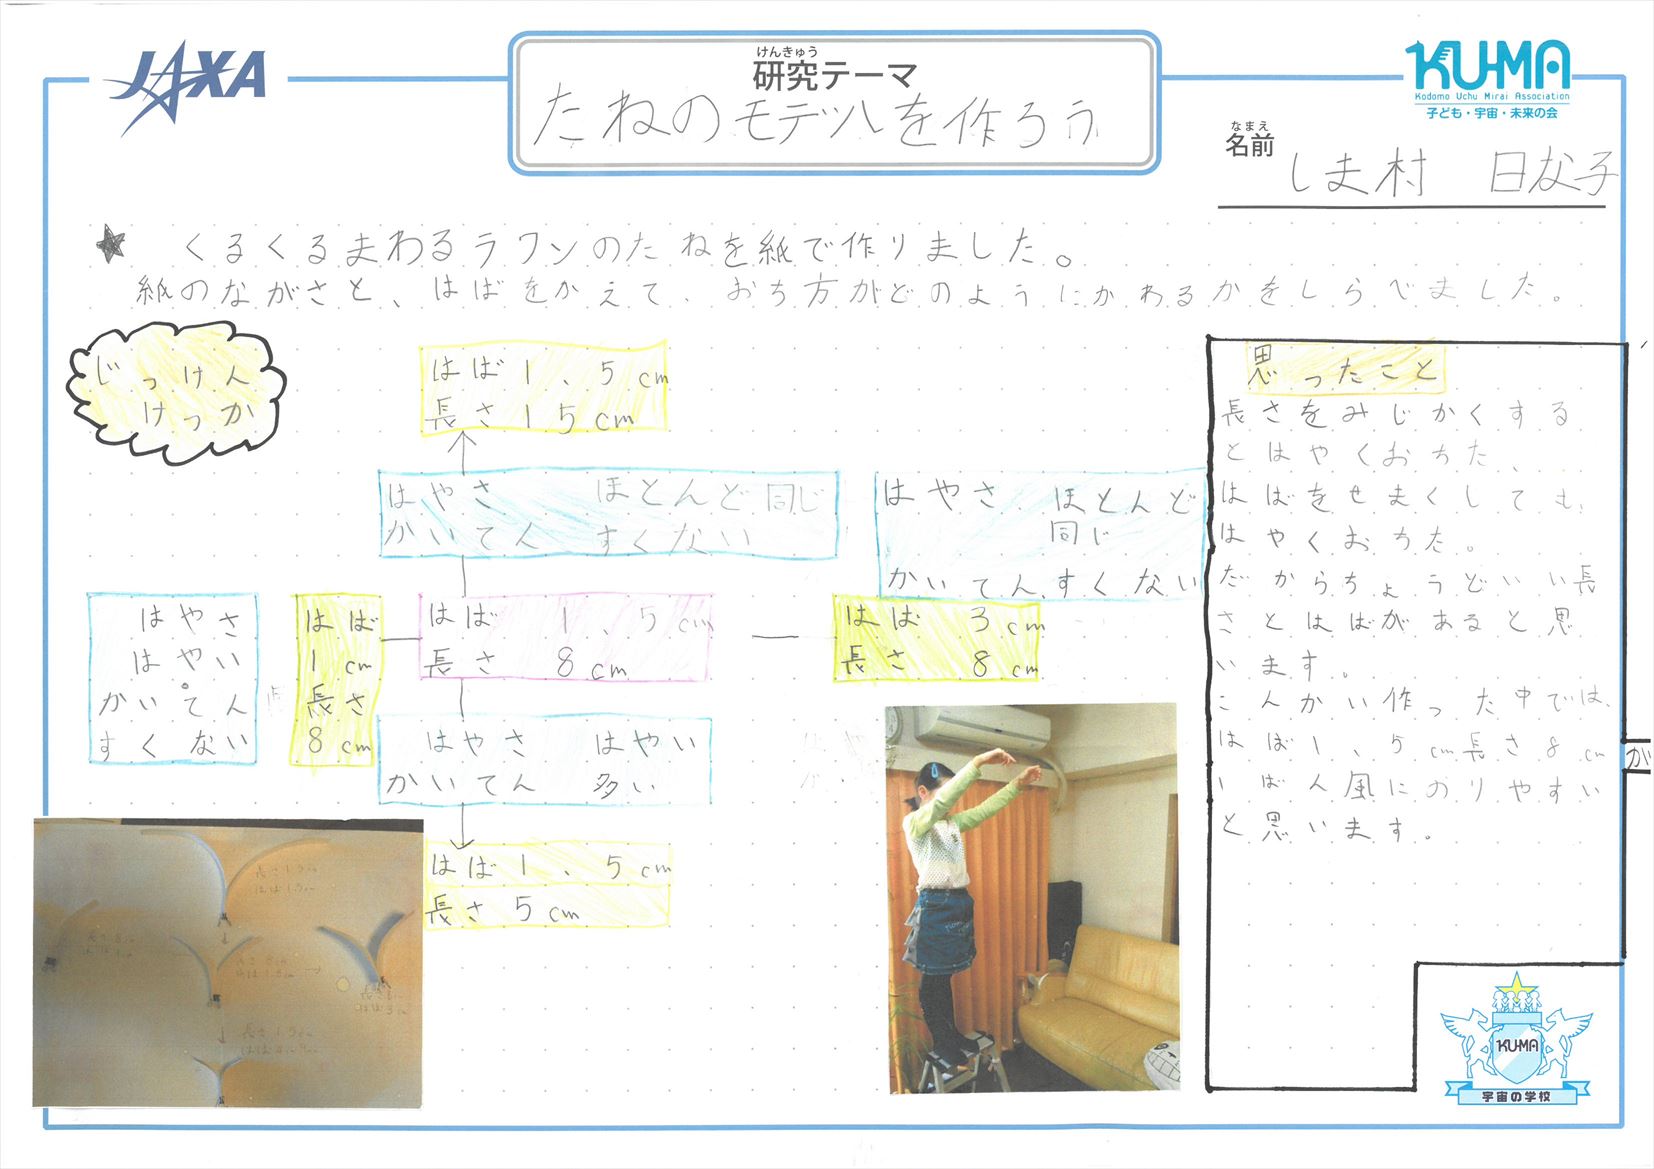 JAXA
けんきゅう
研究テーマ
たねのモデルを作ろう
KU-MA
Kodomo Uchu Mirai Association
子ども・宇宙・未来の会
なまえ
名前
しま村 日な子
★ くるくるまわるラワンのたねを紙で作りました。
紙のながさと、はばをかえて、おち方がどのようにかわるかをしらべました。
じっけん
けっか
はば1、5cm
長さ15cm
はやさ ほとんど同じ
かいてん すくない
はやさ ほとんど
同じ
かいてんすくない
はやさ
はやい
かいてん
すくない
はば
1cm
長さ
8cm
はば 1、5cm
長さ 8cm
はば 3cm
長さ 8cm
はやさ はやい
かいてん 多い
はば1、5cm
長さ5cm
思ったこと
長さをみじかくする
とはやくおちた、
はばをせまくしても、
はやくおちた。
だからちょうどいい長
さとはばがあると思
います。
こんかい作った中では、
はば1、5cm長さ8cm
いばん風にのりやすい
と思います。
が
KU-MA
宇宙の学校